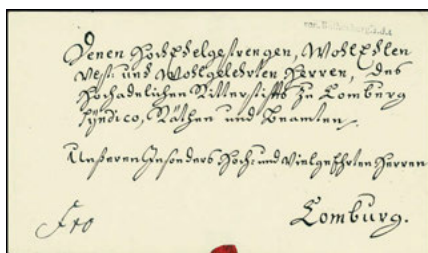 von Rothenburg a.d.t.
Denen HochEdelgestrengen, WohlEdlen
Vest: und Wohlgelehrten Herren, des
Hochadelichen Ritterstiffts zu Comburg
Syndico, Räthen und Beamten,
Unßeren Insonders Hoch: und Vielgeehrten Herren
Fro Comburg.